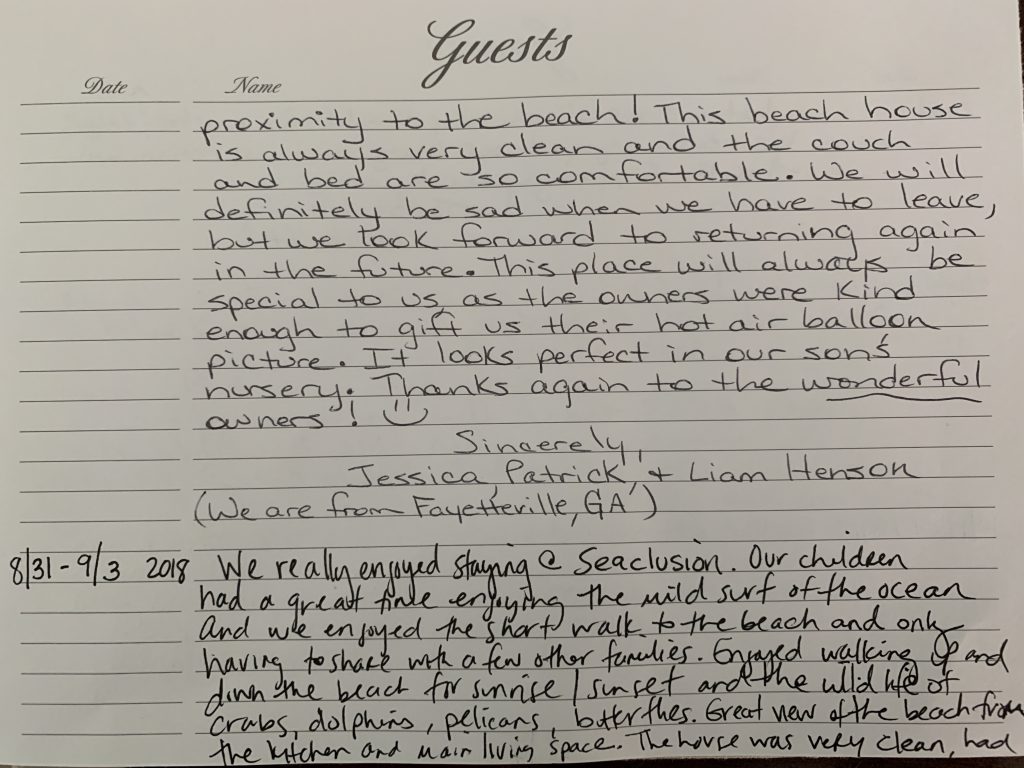 Guests
Date Name
proximity to the beach! This beach house
is always very clean and the couch
and bed are so comfortable. We will
definitely be sad when we have to leave,
but we look forward to returning again
in the future. This place will always be
special to us as the owners were kind
enough to gift us their hot air balloon
picture. It looks perfect in our son's
nursery. Thanks again to the wonderful
owners! :)
Sincerely,
Jessica, Patrick, + Liam Henson
(We are from Fayetteville, GA)
8/31 - 9/3 2018 We really enjoyed staying @ Seaclusion. Our children
had a great time enjoying the mild surf of the ocean
And we enjoyed the short walk to the beach and only
having to share with a few other families. Enjoyed walking up and
down the beach for sunrise / sunset and the wild life of
crabs, dolphins, pelicans, butterflies. Great view of the beach from
the kitchen and main living space. The house was very clean, had